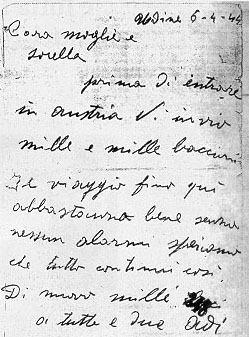 Udine 6-4-44
Cara moglie e
sorella
prima di entrare
in austria V. invio
mille e mille baccioni
Il viaggio fino qui
abbastanza bene senza
nessun alarmi speriamo
che tutto continui cosi.
Di nuovo mille
a tutte e due